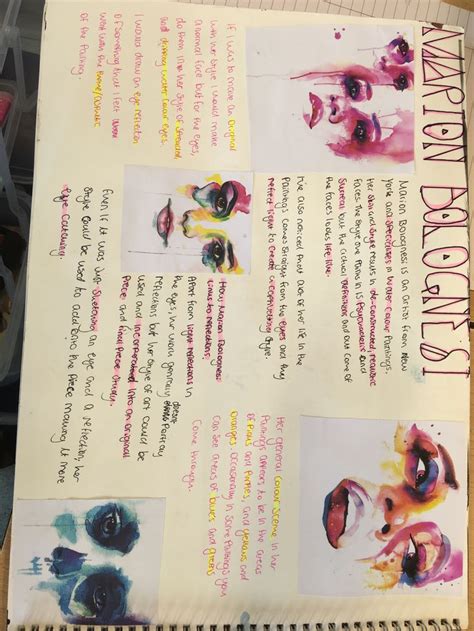 MARION BOLOGNESI
Marion Bolognesi is an artist from New
York and specialises in water colour paintings.
Her skill and style results in de-constructed,
faces. The style she paints in is
Surreal but the actual and out come of
the faces looks life like.
I've also noticed that alot of her life in the
Paintings comes straight from the eyes and they
reflect light to create a captivating style.
If I was to make an original
with her style I would make
a normal face but for the eyes,
do them in her style of
and dripping water colour eyes.
I would draw an eye reflection
of something that I felt
went well with the theme/
of the Painting.
Her general Colour Scheme in her
Paintings appears to be in the areas
of Pinks and Purples, and yellows and
Oranges, occasionally in some Paintings you
can see areas of blues and greens
Come through.
How Marion Bolognesi
links to reflections:
Apart from light reflections in
the eyes, her work generally doesnt
Portray
reflections but her style of art could be
used and incorporated into an original
Piece and final Piece
Even if it was just an eye and a reflection, her
style could be used to add onto the Piece making it more
eye catching.